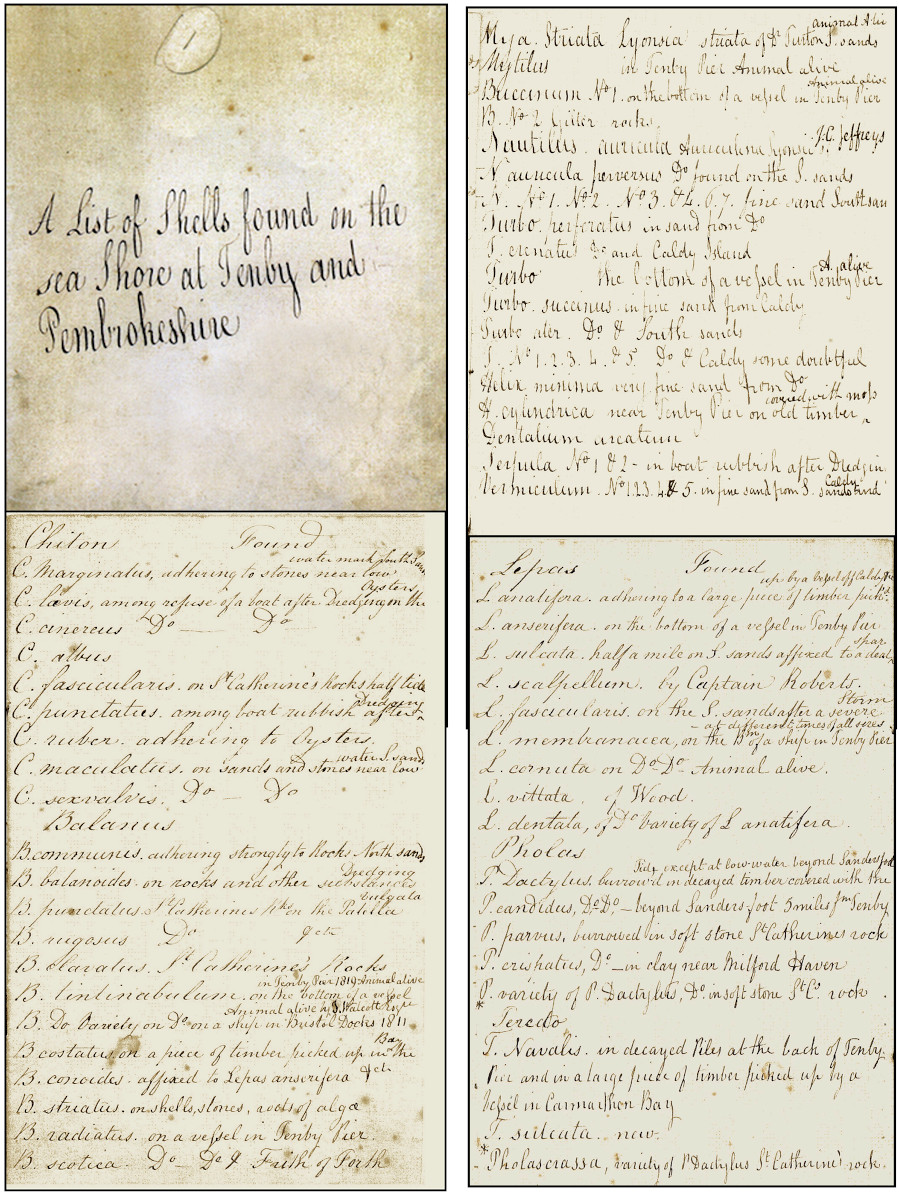 1
A List of Shells found on the
sea Shore at Tenby and
Pembrokeshire
Mya. Striata Lyonsia striata of Dr Turton S. sands animal Alive
Mytilus in Tenby Pier Animal alive
Buccinum No 1. on the bottom of a vessel in Tenby Pier Animal alive
B. No 2 Gilter rocks
Nautilus. auricula J.G. Jeffreys
N. auricula perversus Do found on the S. sands
N. No 1. No 2. No 3. & 4. 6. 7. fine sand South san
Turbo. perforatus in sand from Do
T. crenatus Do and Caldy Island
Turbo the bottom of a vessel in Tenby Pier A. alive
Turbo. succinus. in fine sand from Caldy
Turbo ater. Do & South sands
T. No 1. 2. 3. 4. & 5. Do & Caldy some doubtful
Helix minima very fine sand from Do
H. cylindrica near Tenby Pier on old timber covered with moss
Dentalium arcatum
Serpula No 1 & 2 - in boat rubbish after Dredging
Vermiculum. No 1 2 3. 4 & 5. in fine sand from S. sands and Caldy
Chiton Found
C. Marginatus, adhering to stones near low water mark South San
C. lævis, among refuse of a boat after Dredging on the Oysters
C. cinereus Do — Do
C. albus
C. fascicularis. on St Catherine's Rocks half tide
C. punctatus among boat rubbish after Dredging
C. ruber. adhering to Oysters.
C. maculatus. on sands and stones near low water S. sand
C. sexvalvis. Do — Do
Balanus
B. communis. adhering strongly to Rocks North sand
B. balanoides. on rocks and other substances Dredging
B. punctatus St Catherines Rks on the Patella vulgata
B. rugosus Do &ct
B. clavatus. St Catherine's Rocks
B. tintinabulum. on the bottom of a vessel in Tenby Pier 1819 Animal alive
B. Do. Variety on Do on a ship in Bristol Docks 1811 Animal alive by J. Walcott Esqr
B costatus on a piece of timber picked up in the Bay
B. conoides. affixed to Lepas anserifera &ct
B. striatus. on shells, stones, roots of algæ
B. radiatus. on a vessel in Tenby Pier
B. scotica. Do — Do & Frith of Forth
Lepas Found
L anatifera. adhering to a large piece of timber pickd. up by a vessel off Caldy
L. anserifera. on the bottom of a vessel in Tenby Pier
L. sulcata. half a mile on S. sands affixed to a deal spar
L. scalpellum. by Captain Roberts.
L. fascicularis. on the S. sands after a severe Storm
L. membranacea, on the Bm of a ship in Tenby Pier at different times & all sizes
L. cornuta on Do Do Animal alive.
L. vittata. of Wood.
L. dentata, of Do Variety of L anatifera.
Pholas
P. Dactylus. burrow'd in decayed timber covered with the Tide, except at low-water beyond Sandersfoot
P. candidus, Do Do, — beyond Sanders-foot 3 miles fm Tenby
P. parvus, burrowed in soft stone St Catherines rock
P. crishatus, Do — in clay near Milford Haven
P. variety of P. Dactylus, Do in soft stone St Cs. rock.
* Teredo
T. Navalis. in decayed Piles at the back of Tenby
Pier and in a large piece of timber picked up by a
Vessel in Carmarthon Bay
T. sulcata. new.
* Pholas crassa, variety of P. Dactylus St Catherine's rock.